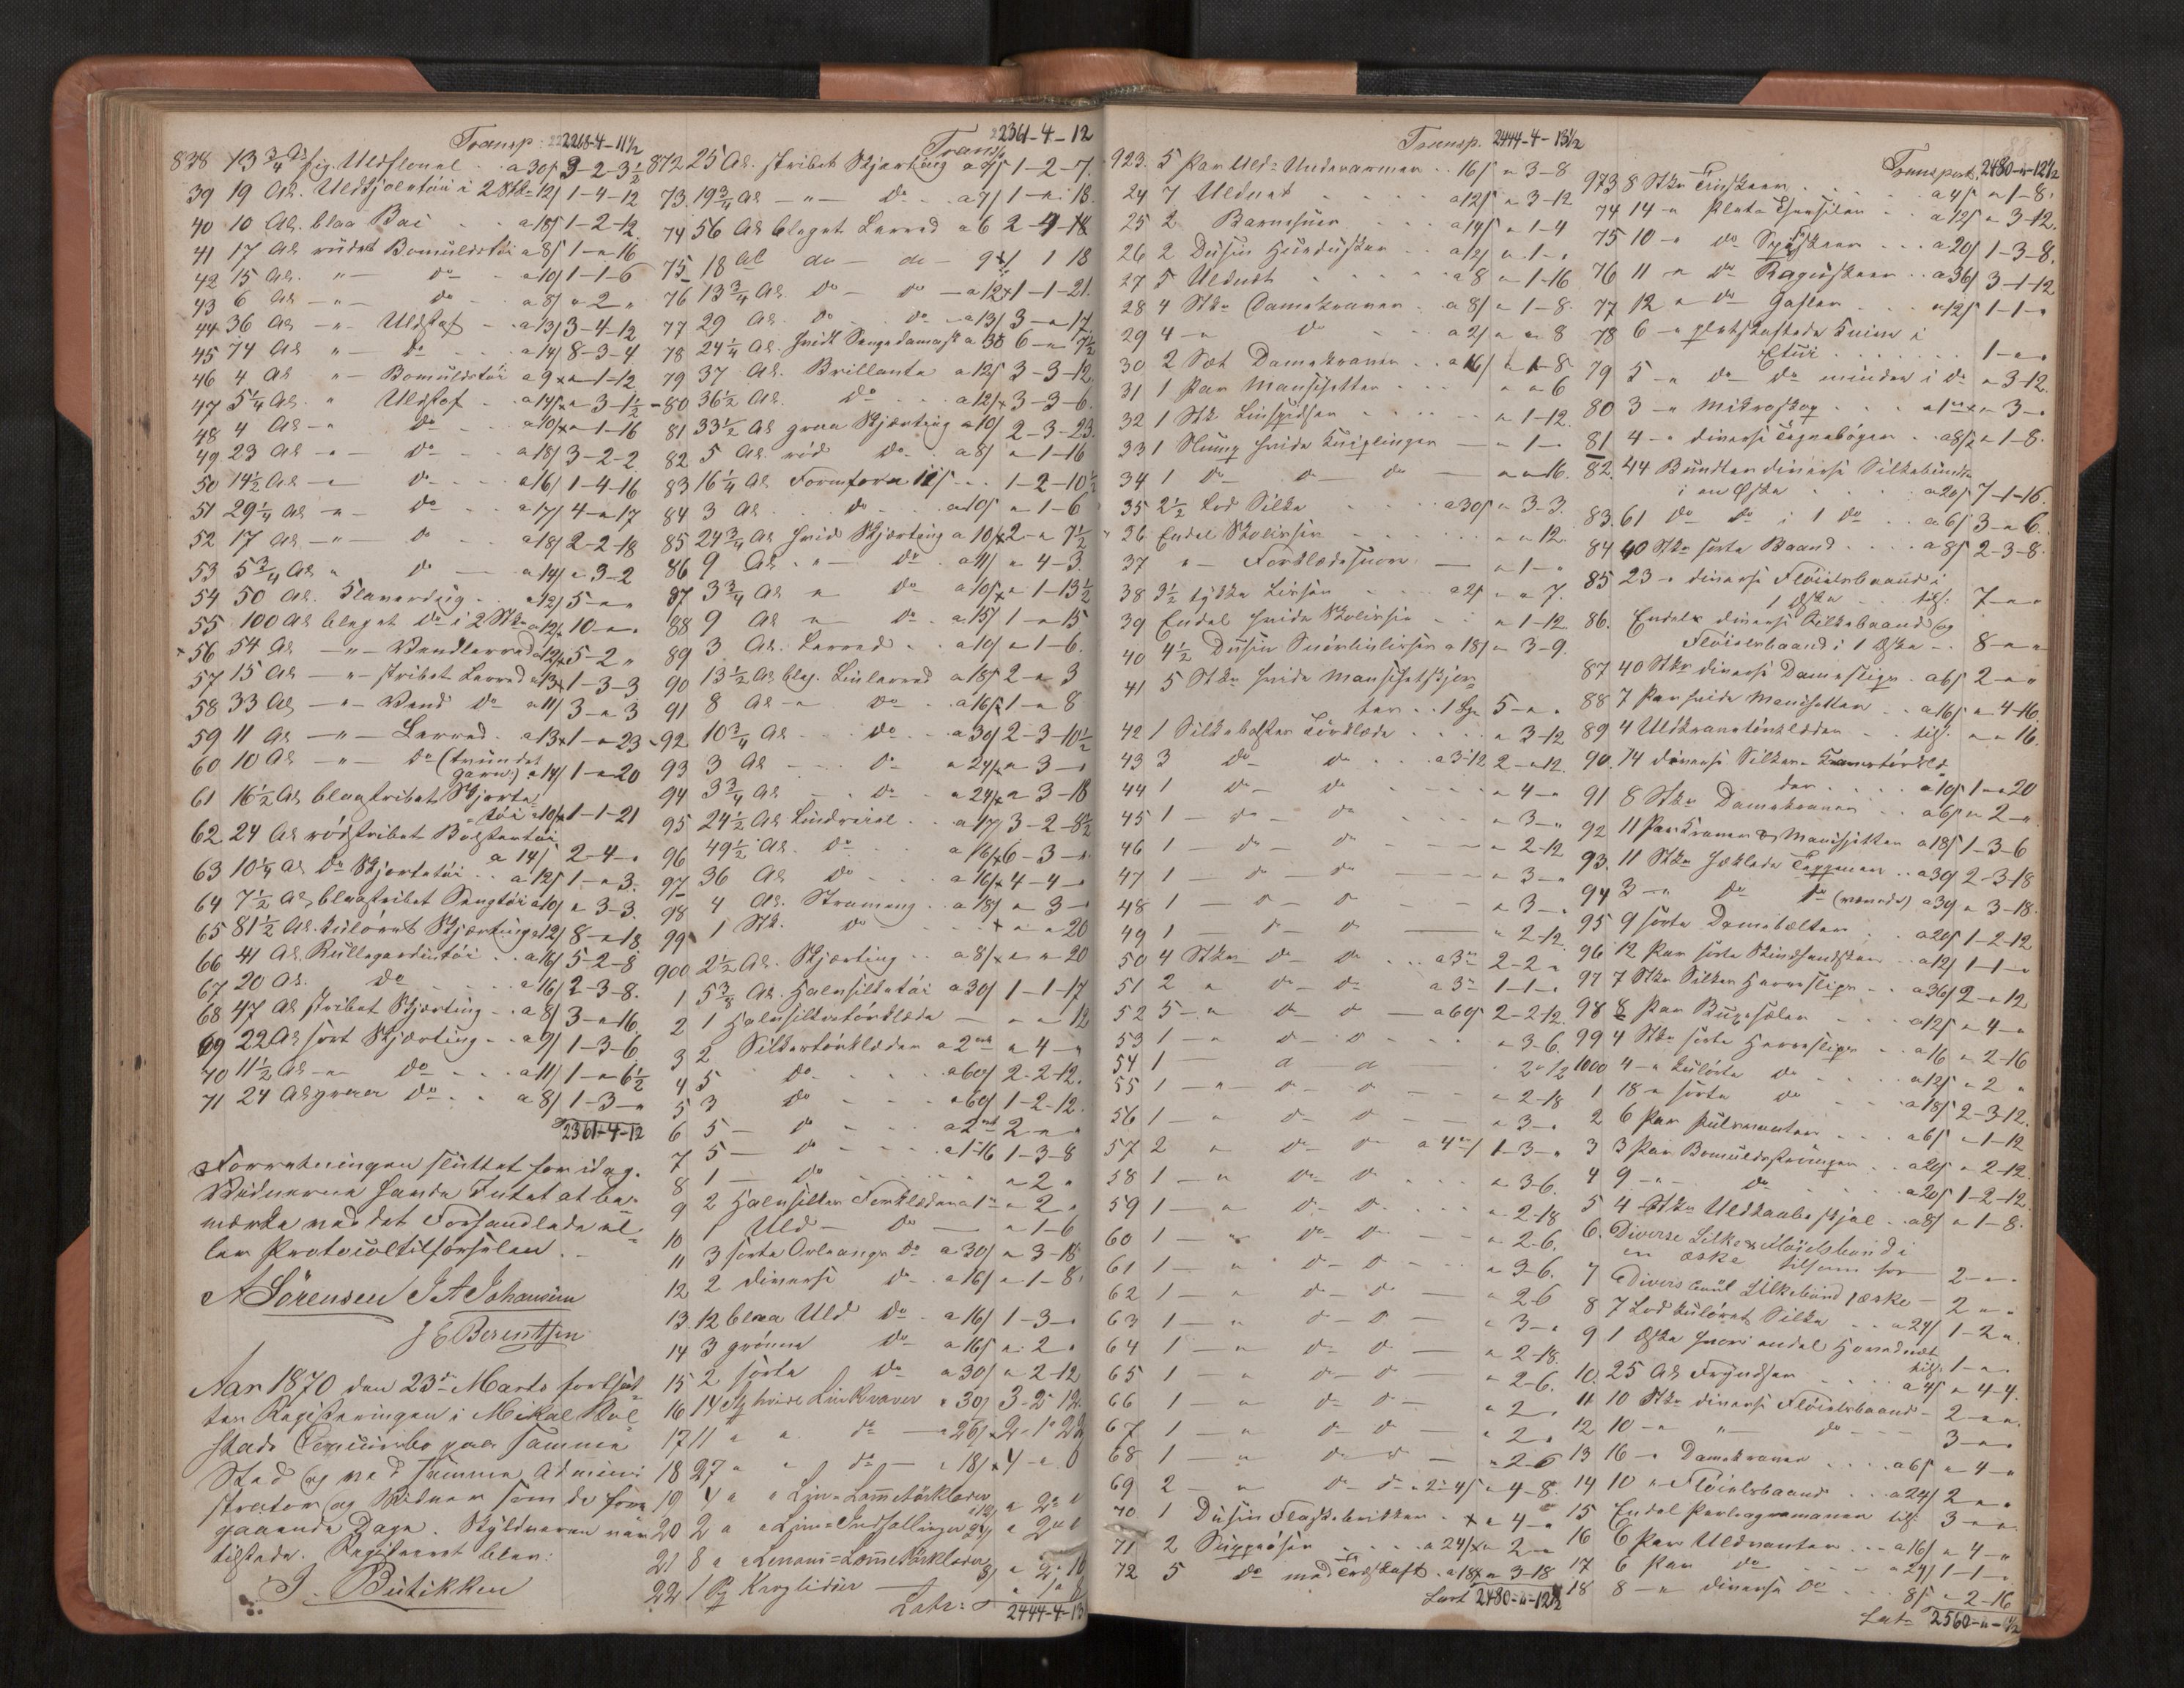 Transp: 2218-4-11½
838 13¾ Al fig. Uldflonel a 30ſ 3-2-3½
39 19 Al. Uldkjoletøi i 2 Stkr 12ſ 1-4-12
40 10 Al. blaa Bai a 18ſ 1-2-12
41 17 Al rudet Bomuldstøi a 8ſ 1-"-16
42 15 Al. " — do a 10ſ 1-1-6
43 6 Al — " — do a 8ſ "-2-"
44 36 Al — " — Uldstof a 13ſ 3-4-12
45 74 Al " — do a 14ſ 8-3-4
46 4 Al " — Bomuldstøi a 9 "-1-12
47 5¼ Al. " Uldstof a 14ſ "-3-1½
48 4 Al — " do a 10ſ "-1-16
49 23 Al — " — do a 18ſ 3-2-2
50 14½ Al — " do a 16ſ 1-4-16
51 29¼ Al — " — do a 17ſ 4-"-17
52 17 Al — " — do a 18ſ 2-2-18
53 5¾ Al " do a 14ſ "-3-2
54 50 Al. Klaverdug a 12ſ 5-"-"
55 100 Al bleget do i 2 Stkr a 12ſ 10-"-"
56 54 Al — " — Vendlerred a 12ſ 5-2-"
57 15 Al — " — stribet Lerred a 13 1-3-3
58 33 Al — " — Vend do a 11ſ 3-"-3
59 11 Al — " — Lerred a 13 1-"-23
60 10 Al — " — do (tvundet
Garn) a 14ſ 1-"-20
61 16½ Al blaastribet Skjorte-
tøi a 10ſ 1-1-21
62 24 Al rødstribet Bolstertøi
a 14ſ 2-4-"
63 10¼ Al do Skjortetøi a 12ſ 1-"-3
64 7½ Al blaastribet Sengtøi a 10ſ "-3-3
65 81½ Al. kulørt Skjærting a 12ſ 8-"-18
66 41 Al. Rullegardintøi a 16ſ 5-2-8
67 20 Al. do a 16ſ 2-3-8
68 47 Al stribet Skjærting a 8ſ 3-"-16
69 22 Al sort Skjærting a 9ſ 1-3-6
70 11½ Al — " do a 11ſ 1-"-6½
71 24 Al graa do a 8ſ 1-3-"
2361-4-12
Forretningen sluttet for idag.
Vidnerne havde Intet at be-
mærke ved det Forhandlede el-
ler Protocoltilførselen.
A Sörensen J A Johansen
J E Berentsen
Aar 1870 den 23de Marts fortsat-
tes Registeringen i Mikal
stads Concursbo paa samme
Sted og ved samme Admini-
strator og Vidner som de fore-
gaaende Dage. Skyldneren var
tilstede. Registreret blev:
I. Butikken
Transp. 2361-4-12
872 25 Al. stribet Skjærting a 7ſ 1-2-7
73 19¾ Al — " — do a 7ſ 1-"-18
74 56 Al bleget Lerred a 6 2-4-18
75 18 al do — do — 9ſ 1 1 18
76 13¾ Al. do — do — a 12 1-1-21
77 29 Al. do do a 13ſ 3-"-17
78 24¼ Al. hvidt Sengedamask a 30 6-"-7½
79 37 Al. Brillante a 12ſ 3-3-12
80 36½ Al. do a 12ſ 3-3-6
81 33½ Al graa Skjærting a 10ſ 2-3-23
82 5 Al. rød do a 8ſ "-1-16
83 16¼ Al Formfora 11ſ 1-2-10½
84 3 Al. do a 10ſ "-1-6
85 24¾ Al hvid Skjærting a 10ſ 2-"-7½
86 9 Al " — do a 11ſ "-4-3
87 3¾ Al " do a 10ſ "-1-13½
88 9 Al " do a 15ſ 1-"-15
89 3 Al. Lerred a 10ſ "-1-6
90 13½ Al bleg. Linlerred a 18ſ 2-"-3
91 8 Al — " do a 16ſ 1-"-8
92 10¾ Al do a 30ſ 2-3-10½
93 3 Al do a 24ſ "-3-"
94 3¾ Al do a 24ſ "-3-18
95 24½ Al Lindreiel a 17ſ 3-2-8½
96 49½ Al. do a 16ſ 6-3-"
97 36 Al do a 16ſ 4-4-"
98 4 Al. Stramang a 18ſ "-3-"
99 1 Stk. do "-"-20
900 2½ Al. Skjærting a 8ſ "-"-20
1 5⅜ Al. Halvsilketøi a 30ſ 1-1-17
2 1 Halvsilketørklæde "-"-12
3 2 Silketørklæder a 2 "-4-"
4 5 do a 60ſ 2-2-12
5 3 do a 60ſ 1-2-12
6 5 — do a 2 2-"-"
7 5 — do a 1-16 1-3-8
8 1 — do "-2-"
9 2 Halvsilke Forklæder a 1 "-2-"
10 1 Uld — do "-1-6
11 3 sorte Orleangs do a 30ſ "-3-18
12 2 diverse do a 16ſ "-1-8
13 12 blaa Uld do a 16ſ 1-3-"
14 3 grønne do a 16ſ "-2-"
15 2 sorte do a 30ſ "-2-12
16 14 Stk hvide Linkraver a 30ſ 3-2-12
17 11 " " do a 26ſ 2-1-22
18 27 " " do a 18ſ 4-"-6
19 4 " " Lin-Lommetörklæder
20 2 " " Lin-Indfalinger 24ſ
21 8 " " Lommetörklæder
22 1 Pk Knoglidser
Latr: 2444-4-13
Transp. 2444-4-13½
923 5 Par Uld-Underarmer 16ſ "-3-8
24 7 Uldnet a 12ſ "-3-12
25 2 Barnehuer a 14ſ "-1-4
26 2 Dusin Hundusker a 12ſ "-1-"
27 5 Uldnet a 8 "-1-16
28 4 Stkr Damekraver a 8ſ "-1-8
29 4 — " do a 2ſ "-"-8
30 2 Sæt Damekraver a 16ſ "-1-8
31 1 Par Manschetter "-"-6
32 1 Stk "-1-12
33 1 Slump hvide Kniplinger "-1-"
34 1 do do do "-"-16
35 2½ Lod Silke a 30ſ "-3-3
36 Endel Skolisser "-"-12
37 " — Forklædesnore "-1-"
38 3½ tykke Lidser a 2ſ "-"-7
39 Endel hvide Skolisser "-1-12
40 4½ Dusin Snørlivlisser a 18ſ "-3-9
41 5 Stkr hvide Manschetskjor-
ter 1 Spd 5-"-"
42 1 Silkebaster Tørklæde "-3-12
43 3 do do a 3-12 2-"-12
44 1 do do "-4-"
45 1 — do do "-3-"
46 1 — do do "-2-12
47 1 — do do "-3-"
48 1 — do "-3-"
49 1 — do do "-2-12
50 4 Stkr do do a 3 2-2-"
51 2 " do do a 3 1-1-"
52 5 — " do do a 60ſ 2-2-12
53 1 — " do do "-3-6
54 1 do do
55 1 — " do do "-2-18
56 1 — " do do "-3-"
57 2 " do do a 4 1-3-"
58 1 — " do do "-3-6
59 1 — " do do "-2-18
60 1 — " do do "-2-6
61 1 — " do do "-3-6
62 1 — " do do "-2-6
63 1 — " do do "-3-"
64 1 — " do do "-2-18
65 1 — " do do "-2-6
66 1 — " do do "-2-"
67 1 — " do do "-2-"
68 1 — " do do "-2-6
69 2 — " do do a 2-4ſ "-4-8
70 1 Dusin Flaskebrikker "-4-"
71 2 Suppeøser a 24ſ "-2-"
72 5 do med Træskaft a 18 "-3-18
Lat 2480-"-12½
Transport 2480-"-12½
973 8 Stkr Theskeer a 4ſ "-1-8
74 14 " Plete Theskeler a 12ſ "-3-12
75 10 — " do Spiseskeer a 20ſ 1-3-8
76 11 — " do Raguskeer a 36ſ 3-1-12
77 12 " do Gafler a 12ſ 1-1-"
78 6 — " pletskaftede Knive i
Etui 1-"-"
79 5 — " do do mindre i do "-3-12
80 3 — " Mikroskop a 1 "-3-"
81 4 — " diverse Tegnebøger a 8ſ "-1-8
82 44 Bundter diverse Silkebaand
i en Æske a 20ſ 7-1-16
83 61 do do i 1 do a 6ſ 3-"-6
84 40 Stkr sorte Baand a 8ſ 2-3-8
85 23 — " diverse Fløielsbaand i
1 Æske tils. 7-"-"
86 Endel diverse Silkebaand og
Fløielsbaand i 1 Æske 8-"-"
87 40 Stkr diverse Dameslips a 6ſ 2-"-"
88 7 Par hvide Manchetter a 16ſ "-4-16
89 4 Uldkravetørklæder tils. "-"-16
90 14 diverse Silke- tørklæ-
der a 10ſ 1-"-20
91 8 Stkr Damekraver a 6ſ "-2-"
92 11 Par Kraver & Manschetter a 18ſ 1-3-6
93 11 Stkr hæklede Tepper a 30ſ 2-3-18
94 3 — " do do a 30ſ "-3-18
95 9 sorte Damebælter a 20ſ 1-2-12
96 12 Par sorte Skindhandsker a 12ſ 1-1-"
97 7 Stkr Silke Herreslips a 36ſ 2-"-12
98 8 Par Buxeseler a 12ſ "-4-"
99 4 Stkr sorte Herreslips a 16 "-2-16
1000 4 — " kulørte do a 12ſ "-2-"
1 18 " sorte do a 18ſ 2-3-12
2 6 Par Pulsvanter a 6ſ "-1-12
3 3 Par Bomuldsstrømper a 20ſ "-2-12
4 9 — " — do a 20ſ 1-2-12
5 4 Stkr Uldkaabe skjal a 8ſ "-1-8
6 Diverse Silke & Fløielsbaand i
en æske tilsam for 2-"-"
7 Divers Silkebaand 1 æske 2-"-"
8 7 Lod kulørt Silke a 24ſ 1-2-"
9 1 Æske hvori endel Hovednet
tils. 1-"-"
10 25 Al Fryndser a 4ſ "-4-4
11 10 Stkr diverse Fløielsbaand 2-"-"
12 10 — " " — do 3-"-"
13 16 — " Damekraver a 6ſ "-4-"
14 10 " Fløielsbaand a 24ſ 2-"-"
15 Endel Portemonnaier tils. 3-"-"
16 6 Par Uldvanter a 16ſ "-4-"
17 6 Par do a 24ſ 1-1-"
18 8 — " diverse do 8ſ "-2-16
Lat 2560-"-½